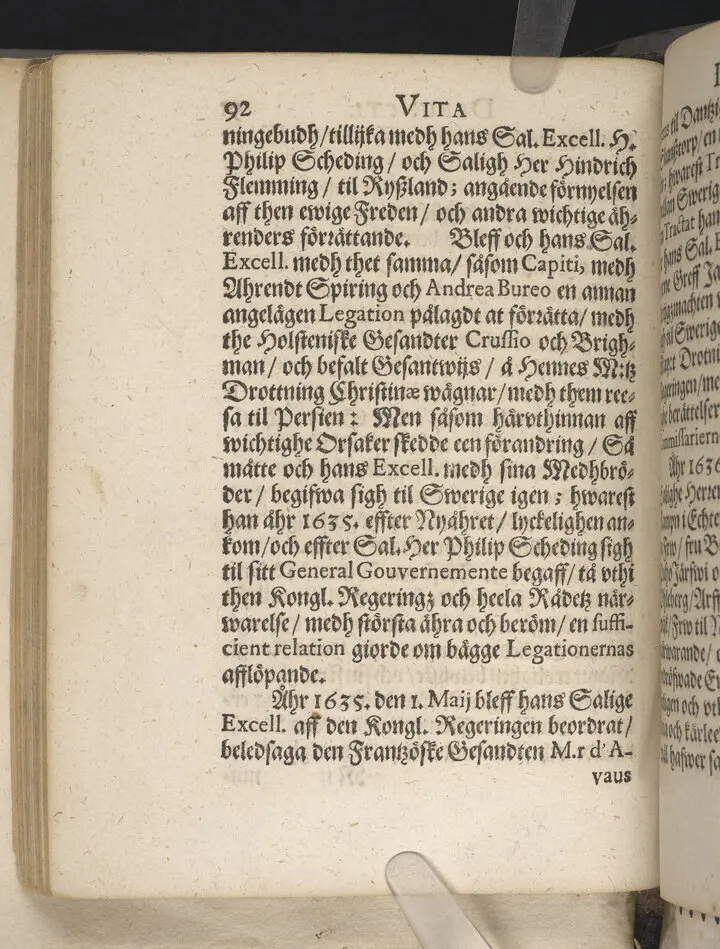 92 VITA
ningebudh/tillijka medh hans Sal. Excell. H.
Philip Scheding/ och Saligh Her Hindrich
Flemming/ til Ryßland; angående förnyelsen
aff then ewige Freden/ och andra wichtige äh-
renders förrättande. Bleff och hans Sal.
Excell. medh thet samma/ såsom Capiti, medh
Ahrendt Spiring och Andrea Bureo en annan
angelägen Legation pålagdt at förrätta/ medh
the Holsteniske Gesandter Crusio och Brigh-
man/ och befalt Gesantwijs/ å Hennes M:tz
Drottning Christinæ wägnar/medh them ree-
sa til Persien: Men såsom härvthinnan aff
wichtighe Orsaker skedde een förandring/ Så
måtte och hans Excell. medh sina Medhbrö-
der/ begifwa sigh til Swerige igen; hwarest
han åhr 1635. effter Nyåhret/ lyckelighen an-
kom/och effter Sal. Her Philip Scheding sigh
til sitt General Gouvernemente begaff/ tå vthi
then Kongl. Regeringz och heela Rådetz när-
warelse/ medh största ähra och beröm/ en suffi-
cient relation giorde om bägge Legationernas
afflöpande.
Åhr 1635. den 1. Maij bleff hans Salige
Excell. aff den Kongl. Regeringen beordrat/
beledsaga den Frantzöske Gesandten M.r d'A-
vaus
til Dantzi
Tractat han
hans Sal. E
Greff Ja
Åhr 1636